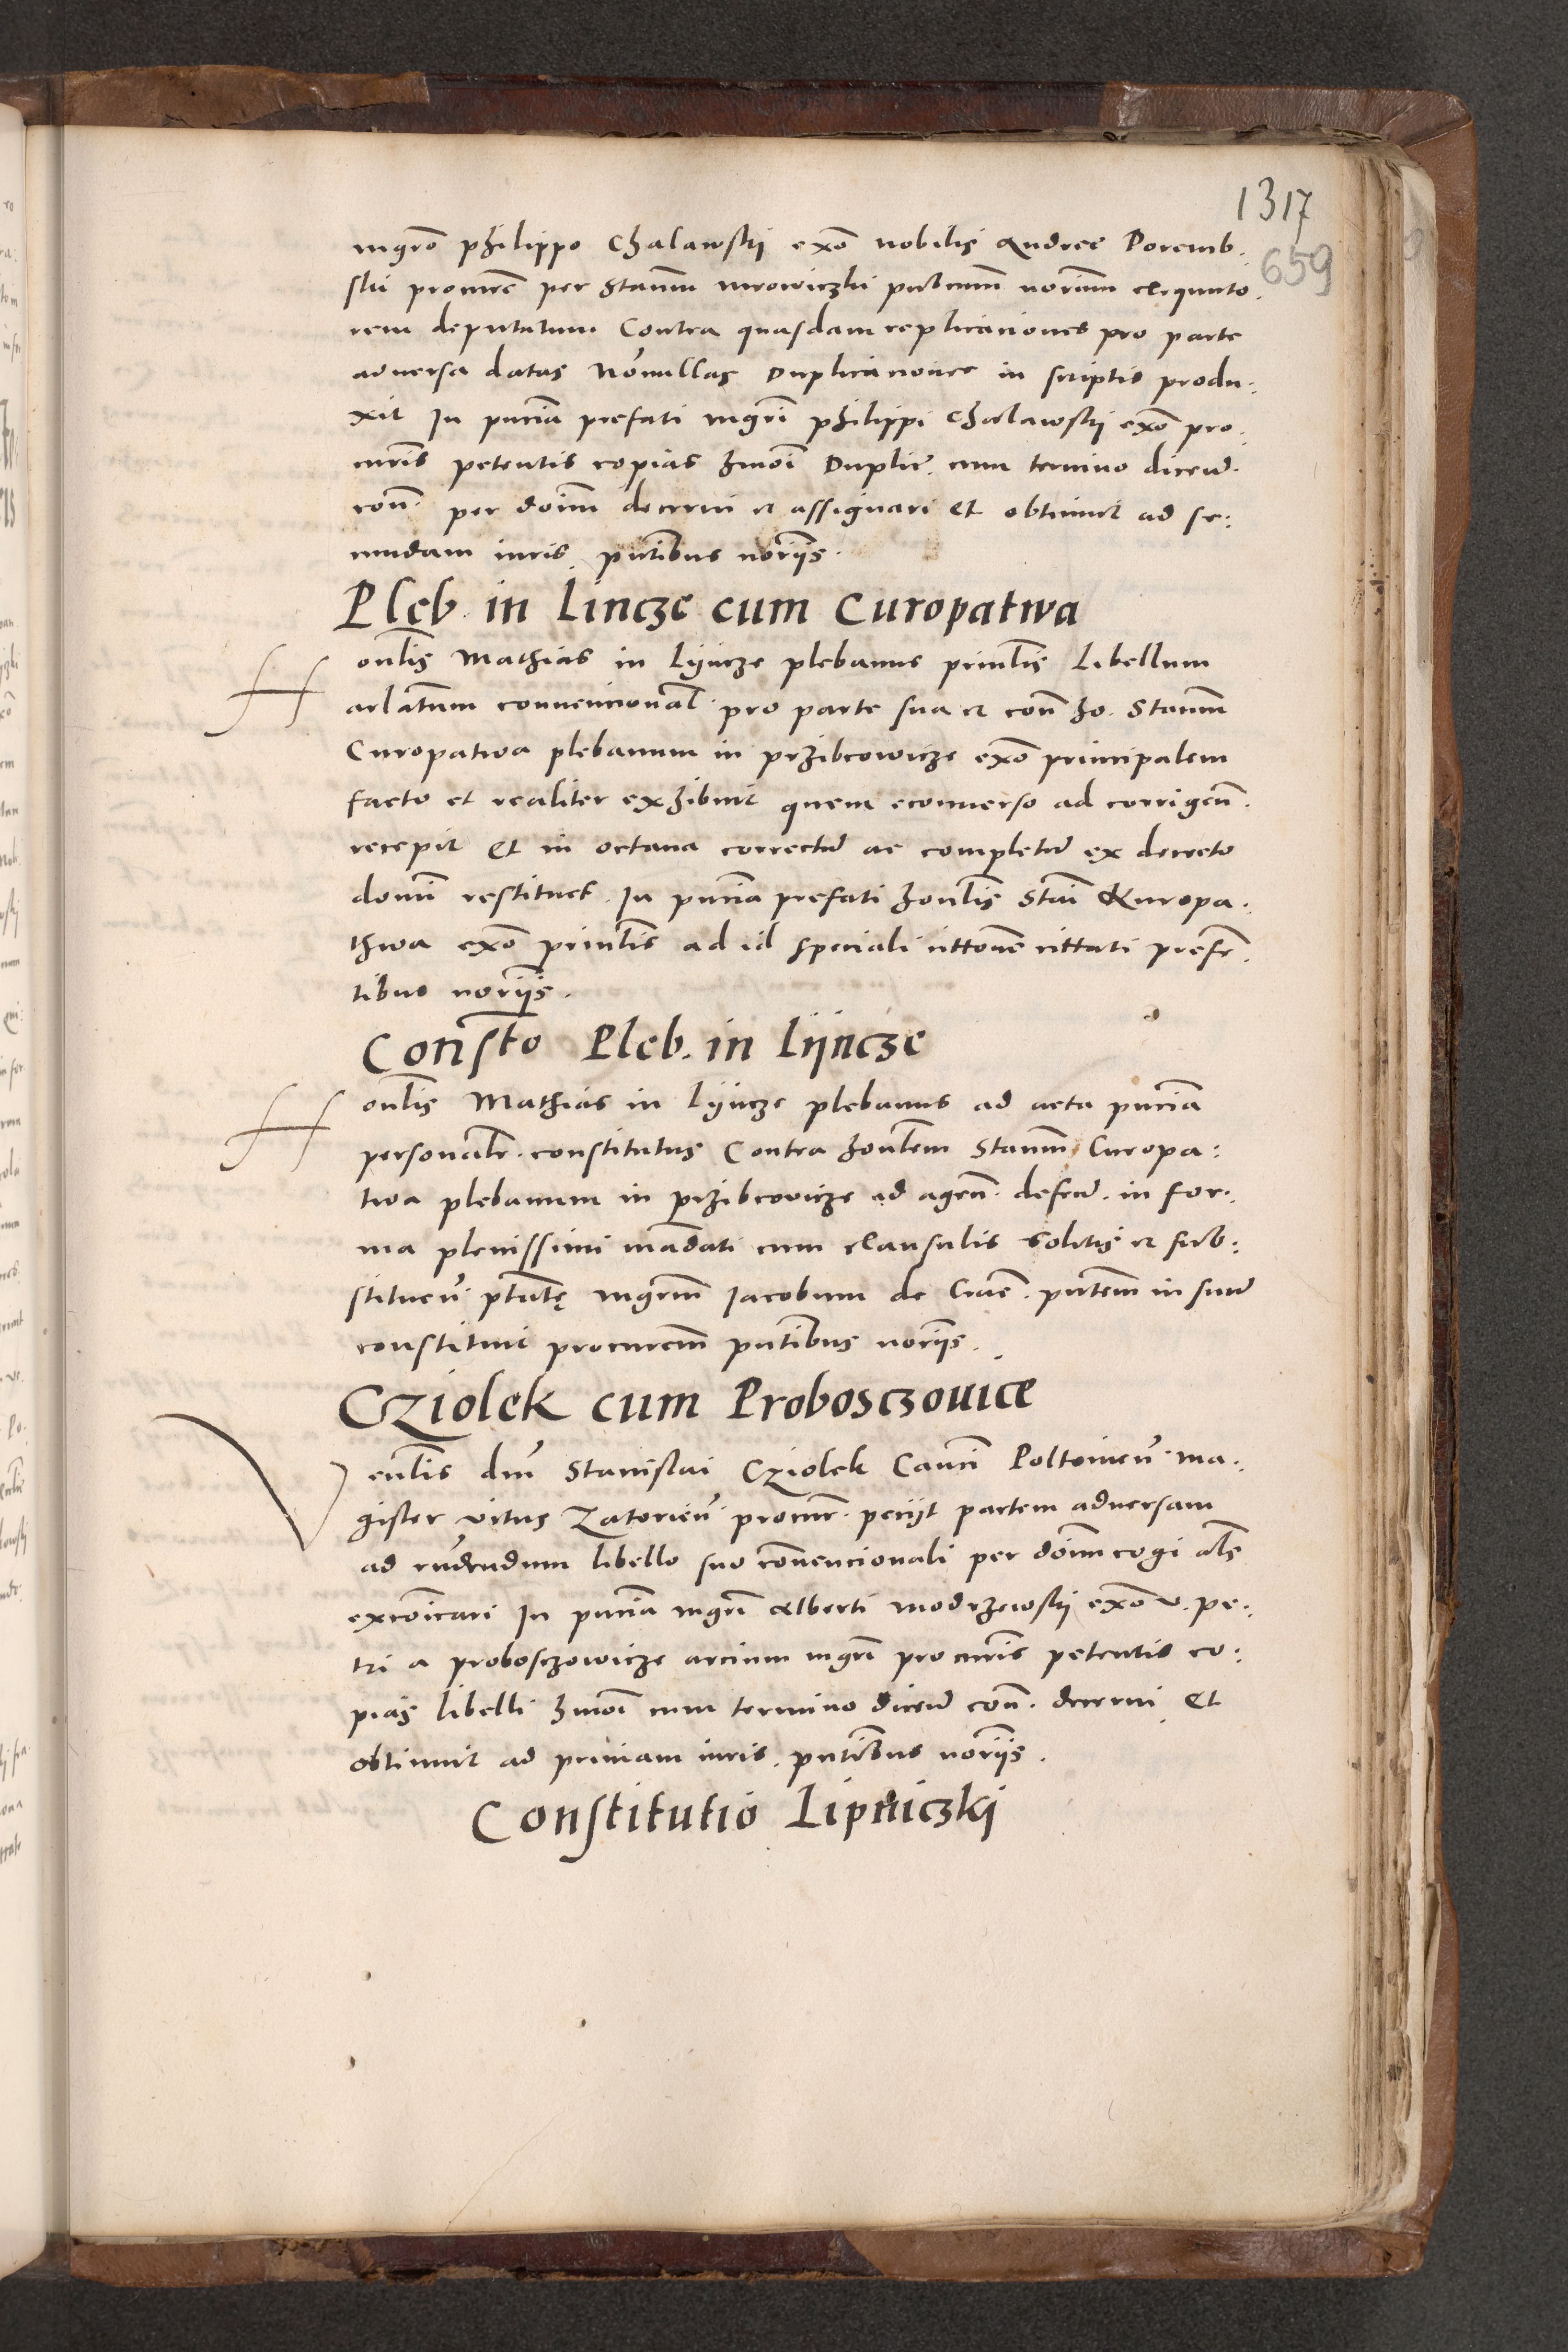 1317
659
mgrō philippo Chalawskÿ exō nobilis Andree Poremb.
skii procurē per Stanm̄ mrowiczki pubcum̄ noriūm exequuto.
rem deputatum Contra quasdam replicaciones pro parte
adversa datas Nōnullas Duplicaciones in scriptis produ:
xit In pn̄cia prefati mgrī philippi Chalawskÿ exō pro:
curis petentis copias hmōi Duplic̄. cum termino dicend̄.
con̄. per doīm decerni et assignari Et obtinuit ad se:
cundam iuris pn̄tibus noriis.
Pleb. in Lincze cum Curopatwa
Honlis Mathias in Lÿncze plebanus prinlis Libellum
arlatum convencional. pro parte sua et con̄ ho. Stanm̄
Curopatwa plebanum in przibcowicze exō principalem
facto et realiter exhibuit quem econverso ad corrigen̄.
recepit Et in octava correctū ac completū ex decreto
domī restituet. In pn̄cia prefati honlis Stai Kuropa:
thwa exō prinlis ad id speciali citone citati presen̄.
tibus noriis.
Consto Pleb. in Lÿncze
Honlis Mathias in Lÿncze plebanus ad acta pn̄cia
personalr. constitutus Contra honlem Stanm̄ Curopa:
twa plebanum in przibcowicze ad agen̄. defend̄. in for:
ma plenissimi mādati cum clausulis solitis et sub:
stituen̄ ptatē mgrm̄ Iacobum de Cracī. pn̄tem in suū
constituit procurem̄ pn̄tibus noriis.
Cziolek cum Probosczovice
Venlis dnī Stanislai Cziolek Canci Poltovien̄ ma:
gister vitus Zatorien̄ procur. peciit partem adversam
ad rn̄dendum libello suo cōvencionali per doīm cogi als
excoīcari In pn̄cia mgrī Alberti modrzewskÿ exō v. pe:
tri a probosczowicze arcium mgrī procuris petentis co:
pias libelli hmōi cum termino dicend̄ con̄. decerni Et
obtinuit ad primam iuris. pn̄tibus noriis.
Constitutio Lipniczki